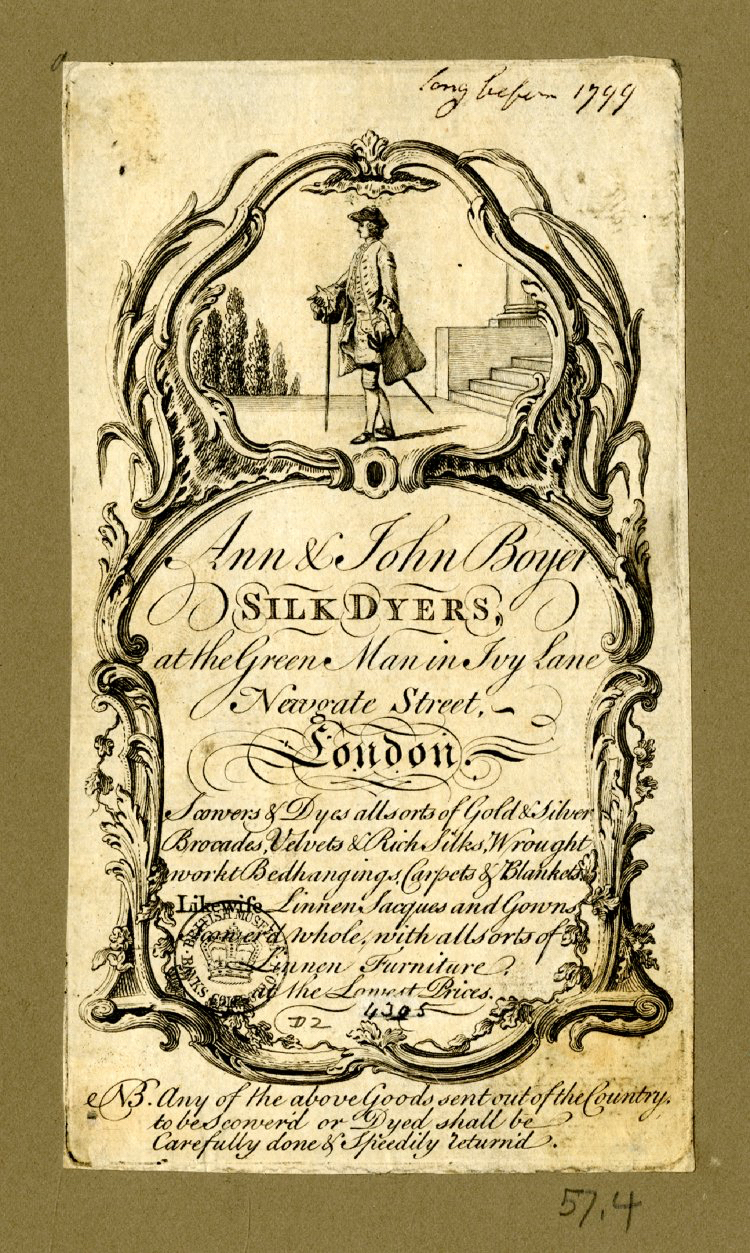 long before 1799
Ann & John Boyer
SILK DYERS,
at the Green Man in Ivy Lane
Newgate Street,
London.
Scowers & Dyes all sorts of Gold & Silver
Brocades, Velvets & Rich Silks, Wrought
workt Bedhangings, Carpets & Blankets.
Likewise Linnen Sacques and Gowns
scower'd whole, with all sorts of
Linnen Furniture.
at the Lowest Prices.
4305
D2
NB. Any of the above Goods sent out of the Country,
to be Scower'd or Dyed shall be
Carefully done & Speedily return'd.
57.4